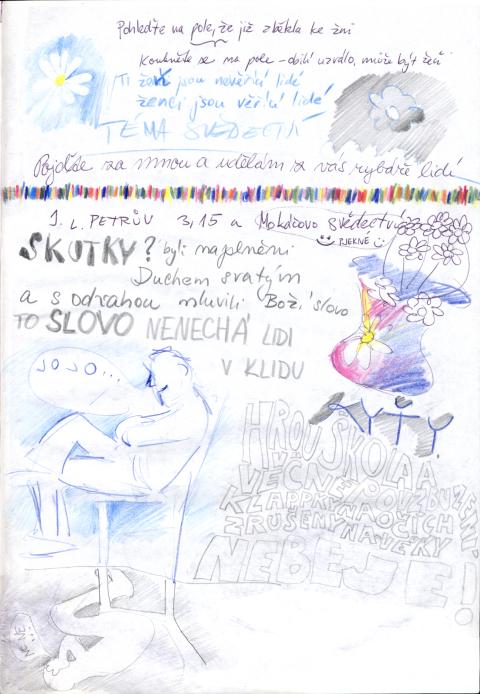 Pohleďte na pole, že již zbělela ke žni
Koukněte se na pole - obilí uzrálo, může být žeň
Ti žací jsou nevěřící lidé
ženci jsou věřící lidé
TÉMA SVĚDECTVÍ
Pojďte za mnou a udělám z vás rybáře lidí
1. L. PETRŮV 3,15 a Mokášovo svědectví
PĚKNÉ
SKUTKY? byli naplněni
Duchem svatým
a s odvahou mluvili Boží slovo
TO SLOVO NENECHÁ LIDI
V KLIDU
JOJO...
HROU ŠKOLA A
VĚČNÉ POVZBUZENÍ
KLAPKY NA OČÍCH
ZRUŠENY NAVĚKY
NEBE JE!
NE NE